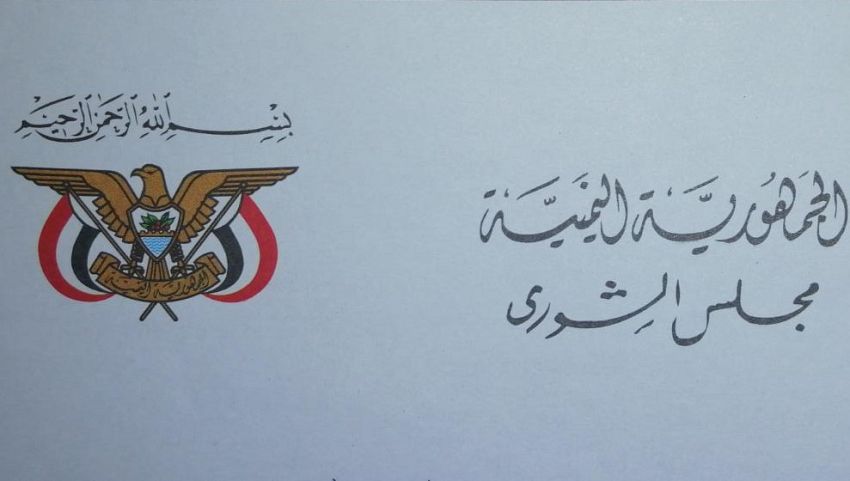 بسم الله الرحمن الرحيم
الجمهورية اليمنية
الجمهورية اليمنية
مجلس الشورى